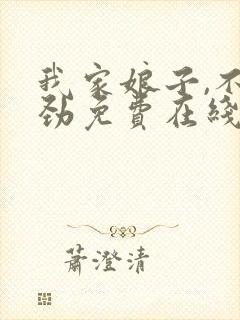 我家娘子,不
劲免費在綫
蕭澄清